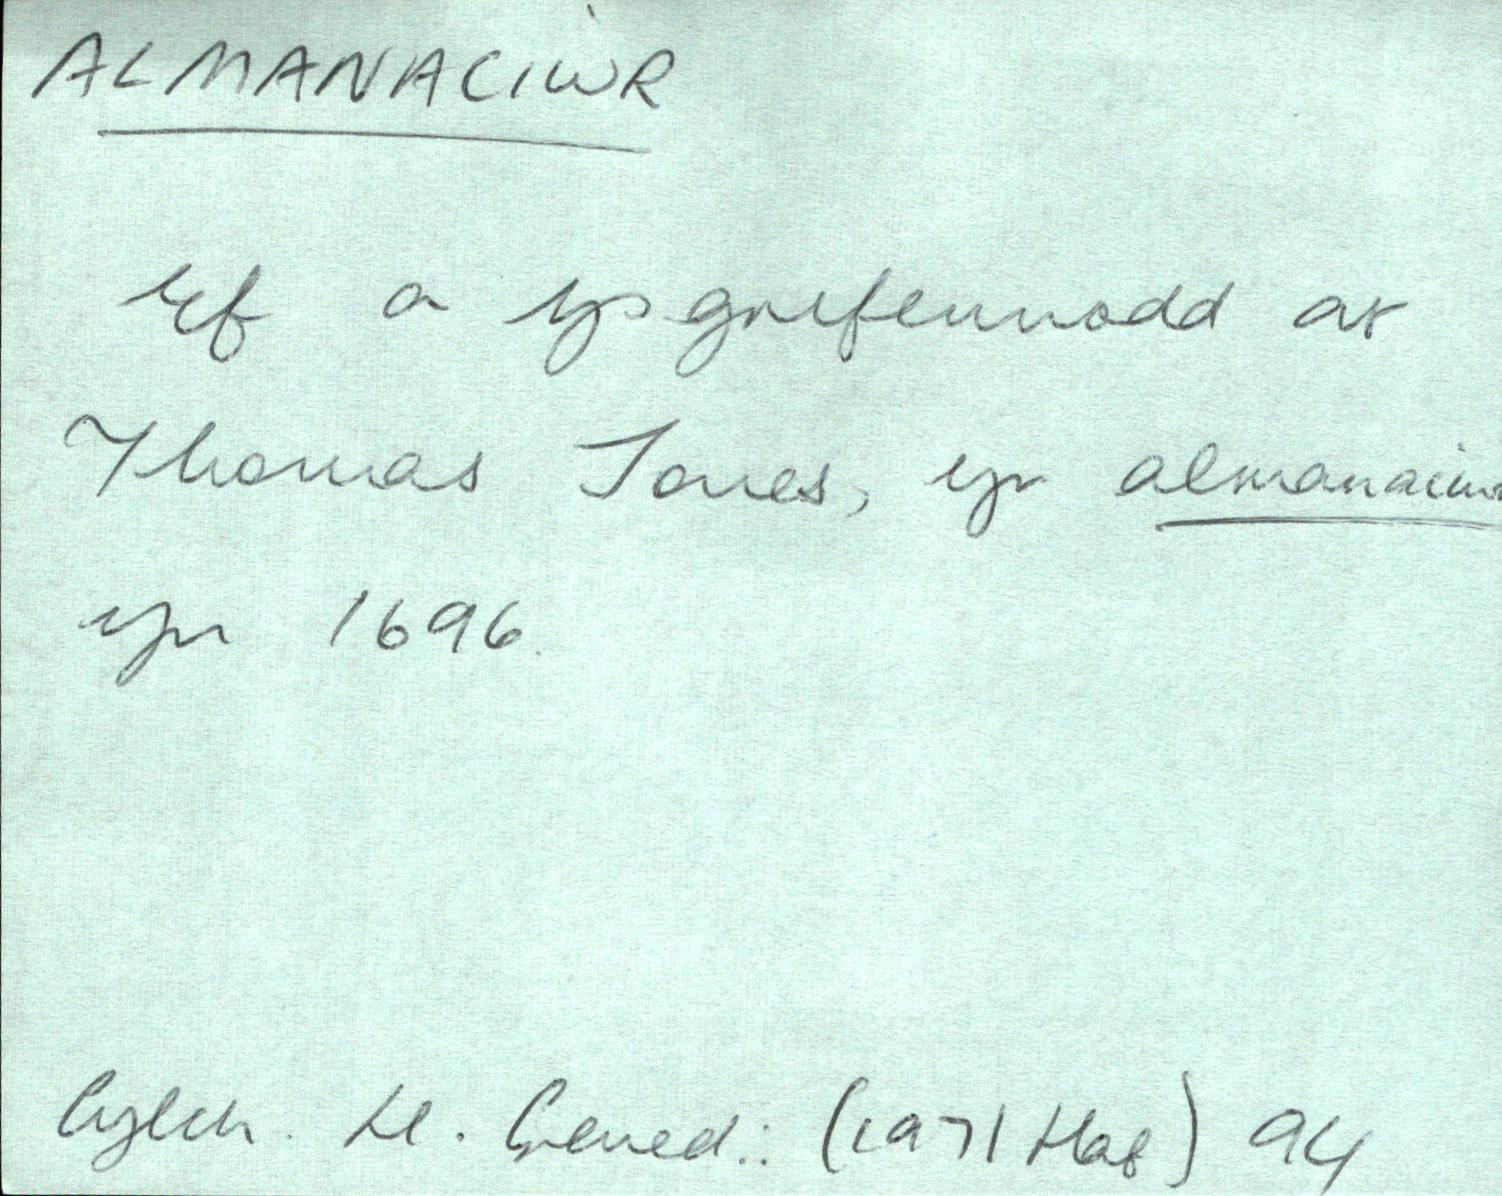 ALMANACIWR
Ef a ysgrifennodd at
Thomas Jones, yr almanaciwr
yn 1696.
Cylch. Ll. Gened.: (1971 Haf) 94